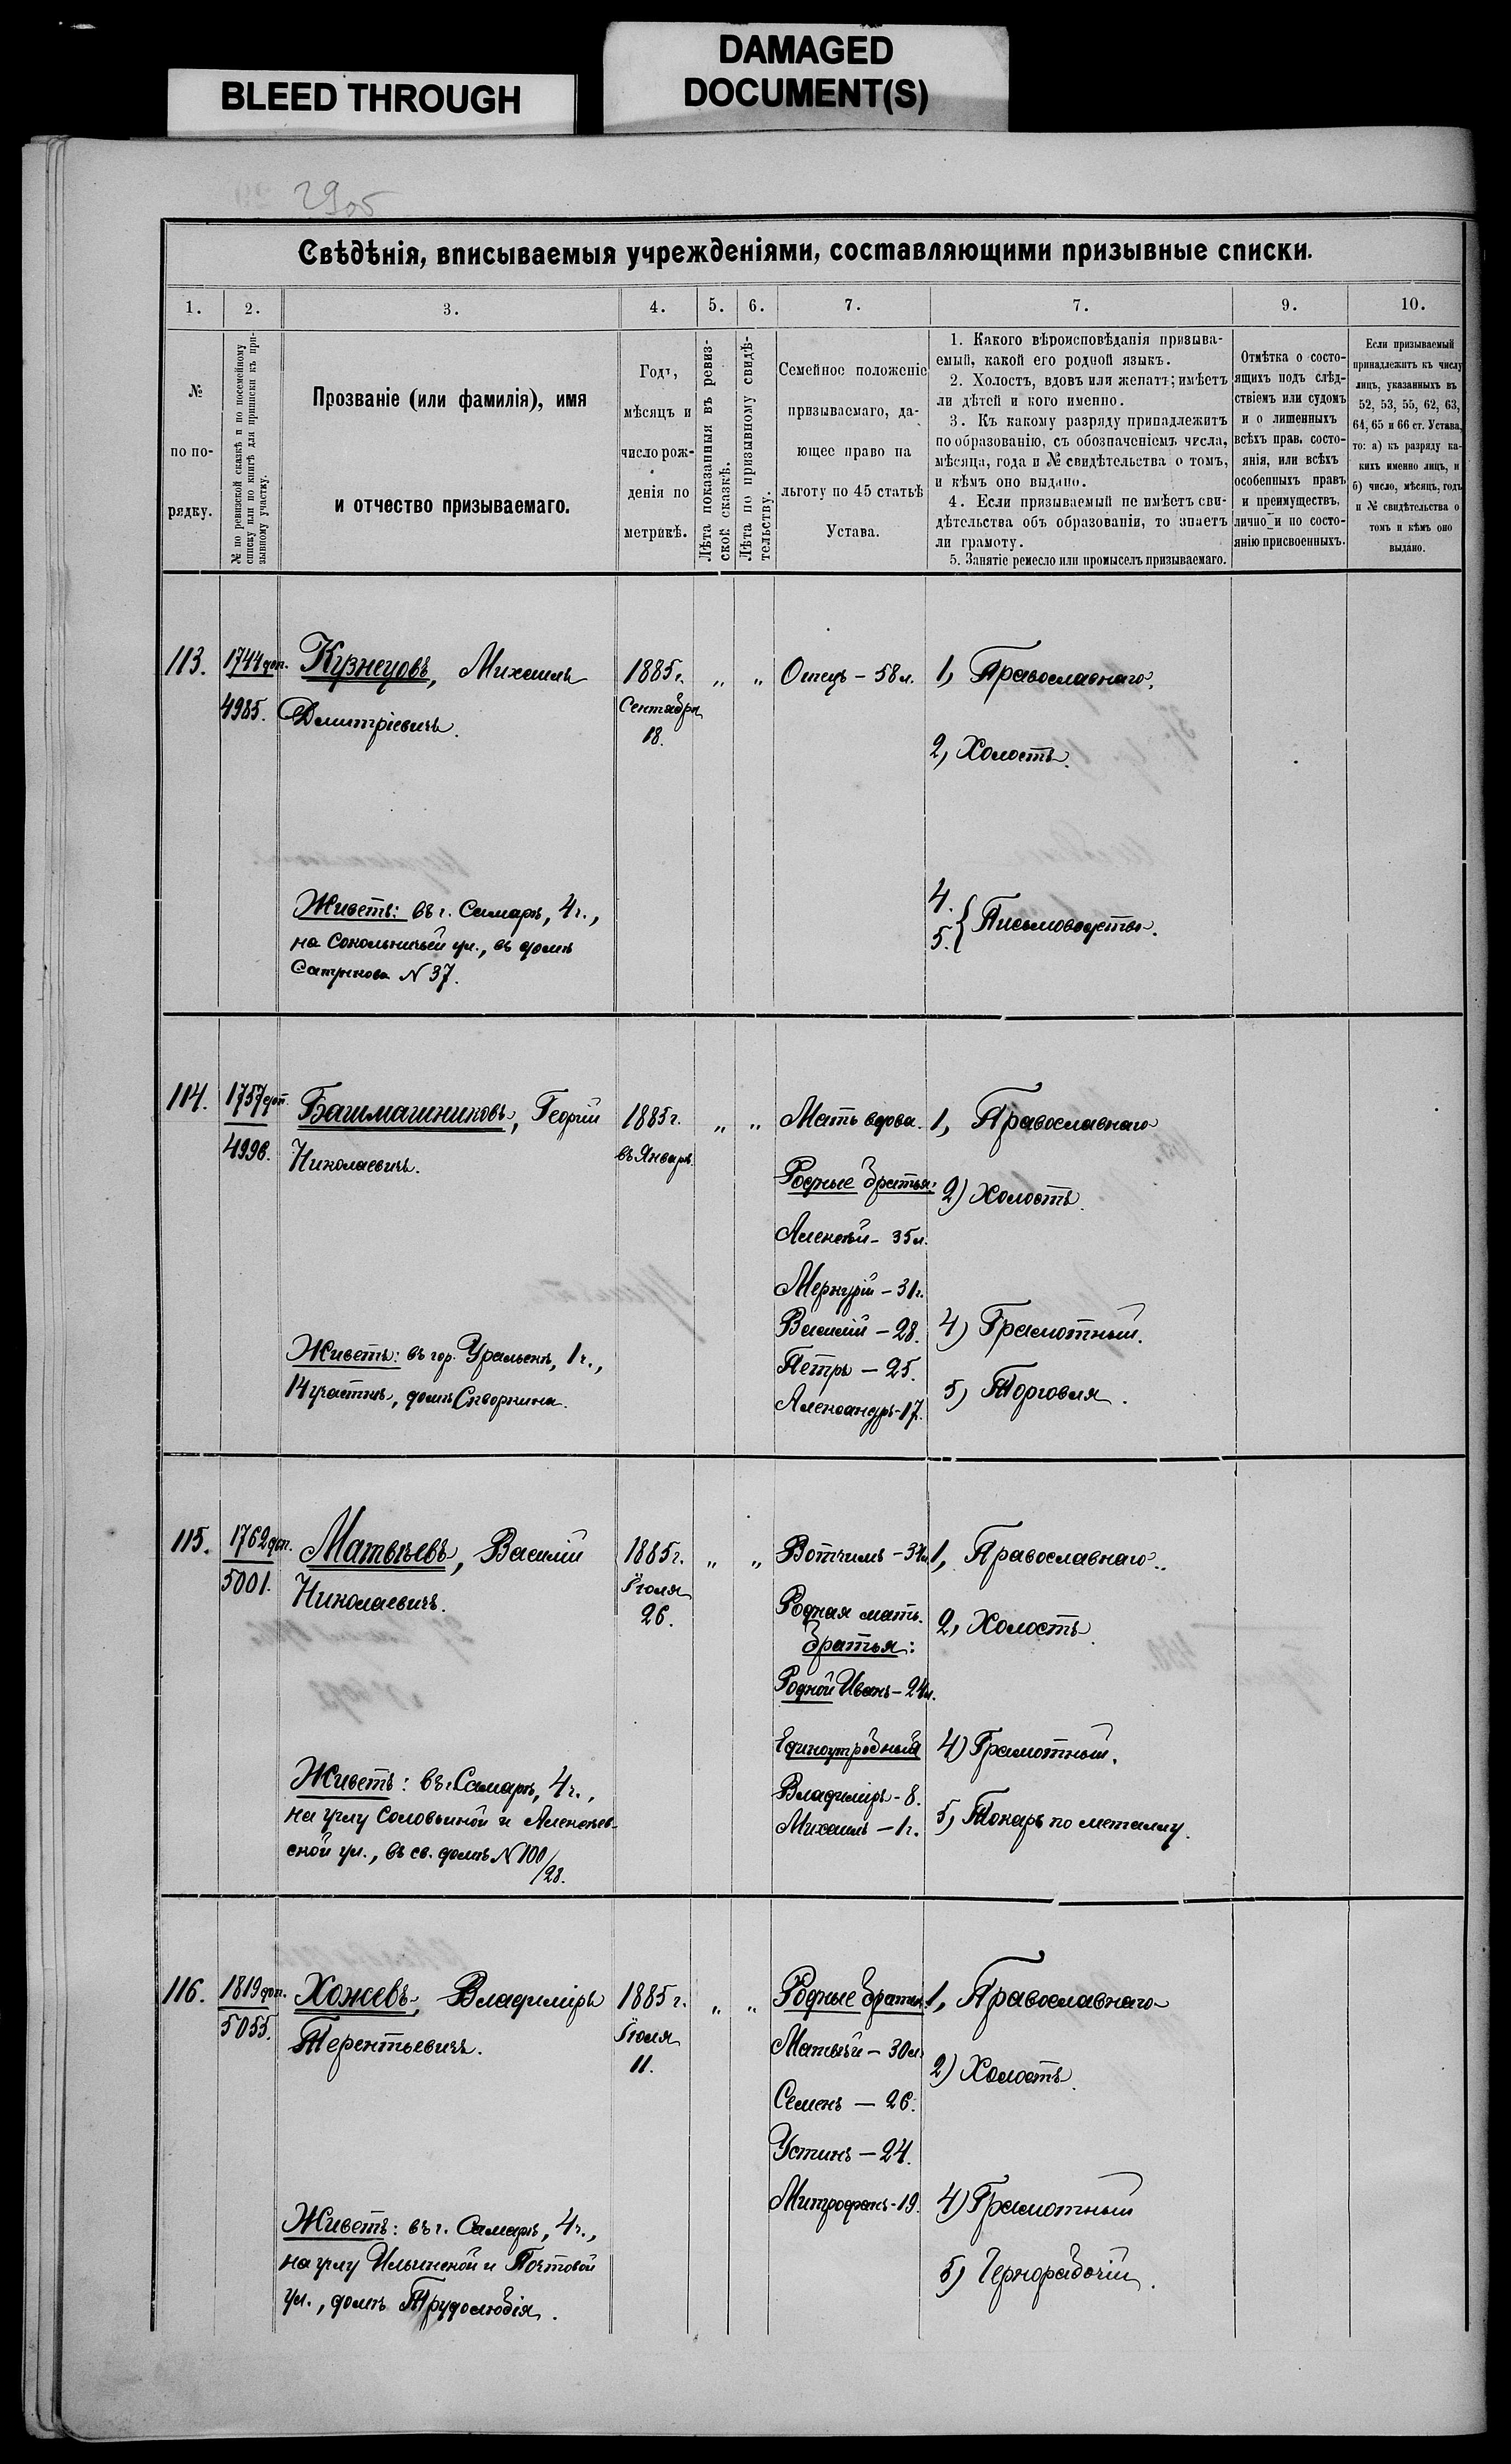 BLEED THROUGH
DAMAGED
DOCUMENT(S)
29об
Свѣдѣнія, вписываемыя учрежденіями, составляющими призывные списки.
1. 2. 3. 4. 5. 6. 7. 7. 9. 10.
№
по по-
рядку.
№ по ревизской сказкѣ и по посемейному
списку или по книгѣ для приписки къ при-
зывному участку.
Прозваніе (или фамилія), имя
и отчество призываемаго.
Годъ,
мѣсяцъ и
число рож-
денія по
метрикѣ.
Лѣта показанныя въ ревиз-
ской сказкѣ.
Лѣта по призывному свидѣ-
тельству.
Семейное положеніе
призываемаго, да-
ющее право на
льготу по 45 статьѣ
Устава.
1. Какого вѣроисповѣданія призыва-
емый, какой его родной языкъ.
2. Холостъ, вдовъ или женатъ; имѣетъ
ли дѣтей и кого именно.
3. Къ какому разряду принадлежитъ
по образованію, съ обозначеніемъ числа,
мѣсяца, года и № свидѣтельства о томъ,
и кѣмъ оно выдано.
4. Если призываемый не имѣетъ сви-
дѣтельства объ образованіи, то знаетъ
ли грамоту.
5. Занятіе ремесло или промыселъ призываемаго.
Отмѣтка о состо-
ящихъ подъ слѣд-
ствіемъ или судомъ
и о лишенныхъ
всѣхъ прав, состо-
янія, или всѣхъ
особенныхъ правъ
и преимуществъ,
лично и по состо-
янію присвоенныхъ.
Если призываемый
принадлежитъ къ числу
лицъ, указанныхъ въ
52, 53, 55, 62, 63,
64, 65 и 66 ст. Устава,
то: а) къ разряду ка-
кихъ именно лицъ, и
б) число, мѣсяцъ, годъ
и № свидѣтельства о
томъ и кѣмъ оно
выдано.
113.
1744 доп.
4985.
Кузнецовъ, Михаилъ
Дмитріевичъ.
Живетъ: въ г. Самарѣ, 4 ч.,
на Сокольничьей ул., въ домѣ
N 37.
1885 г.
Сентября
18.
„ „
Отецъ – 58 л.
1, Православнаго.
2, Холостъ.
4.
5. { Письмоводство.
114.
1757 доп.
4996.
Башмашниковъ, Георгій
Николаевичъ.
Живетъ: въ гор. Уральскѣ, 1 ч.,
14 участкѣ, домъ Скворкина.
1885 г.
въ Январѣ.
„ „
Мать вдова.
Родные братья:
Алексѣй – 35 л.
Меркурій – 31 г.
Василій – 28.
Петръ – 25.
Александръ – 17.
1, Православнаго
2) Холостъ.
4) Грамотный.
5) Торговля.
115.
1762 доп.
5001.
Матвѣевъ, Василій
Николаевичъ.
Живетъ: въ г. Самарѣ, 4 ч.,
на углу Соловьиной и Алексѣев-
ской ул., въ св. домѣ N 100
/28.
1885 г.
Іюля
26.
„ „
Вотчимъ –
Родная мать.
братья:
Родной Иванъ – 24 л.
Единоутробный
Владиміръ – 8.
Михаилъ – 1 г.
1, Православнаго.
2, Холостъ.
4) Грамотный.
5, Токарь по металлу.
116.
1819 доп.
5055.
Хожевъ, Владиміръ
Терентьевичъ.
Живетъ: въ г. Самарѣ, 4 ч.,
на углу Ильинской и Почтовой
ул., домъ Трудолюбія.
1885 г.
Іюля
11.
„ „
Родные братья:
Матвѣй – 30 л.
Семенъ – 26.
Устинъ – 24.
Митрофанъ – 19.
1, Православнаго
2) Холостъ.
4) Грамотный
5) Чернорабочій.